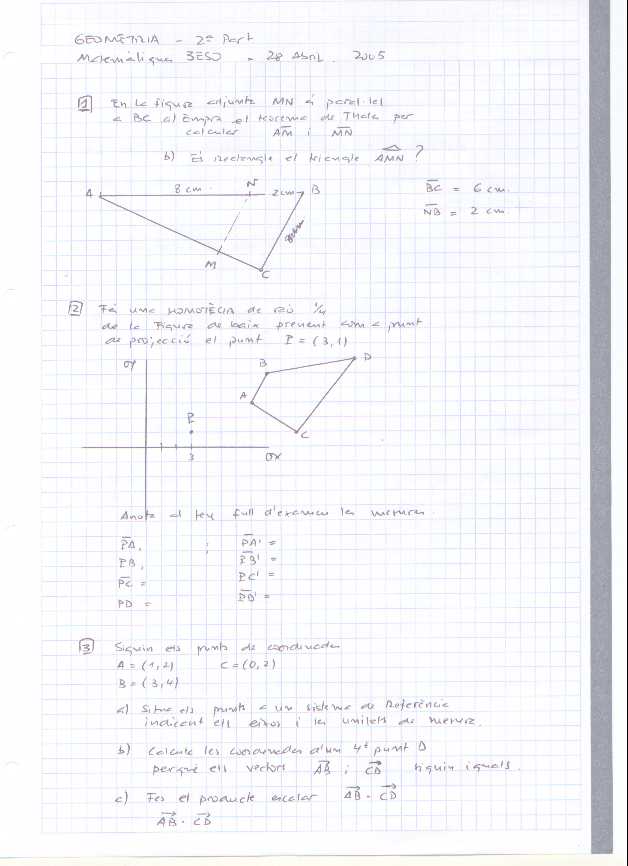 GEOMETRIA - 2ª Part
Matemàtiques 3ESO - 28 Abril 2005
1 En la figura adjunta MN és paral·lel
a BC a) Empra el teorema de Thales per
calcular AM i MN
b) És rectangle el triangle AMN ?
A 8 cm. N 2cm B
BC = 6 cm.
NB = 2 cm
M C
2 Fa una HOMOTÈCIA de raó 1/4
de la Figura de baix prenent com a punt
de projecció el punt P = (3,1)
OY B D
A
P C
3 OX
Anota al teu full d'examen les mesures.
PA, ; PA' =
PB, PB' =
PC = PC' =
PD = PD' =
3 Siguin els punts de coordenades
A = (1,2) C = (0,2)
B = (3,4)
a) Situa els punts a un sistema de Referència
indicant els eixos i les unitats de mesura.
b) Calcula les coordenades d'un 4t punt D
perquè els vectors AB i CD siguin iguals.
c) Fes el producte escalar AB · CD
AB · CD